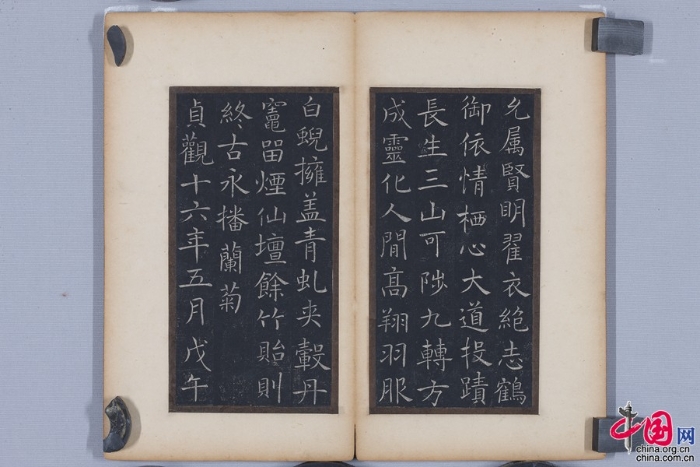 允属賢明翟衣絶志鶴
御依情栖心大道投蹟
長生三山可陟九轉方
成靈化人間髙翔羽服
白蜺擁盖青虬夾轂丹
竈留煙仙壇餘竹貽則
終古永播蘭菊
貞觀十六年五月戊午
中国网
china.org.cn
china.com.cn